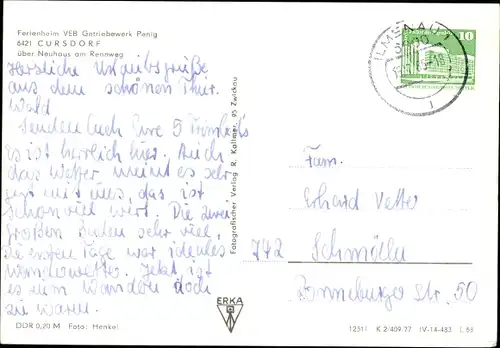 Ferienheim VEB Getriebewerk Penig
6421 CURSDORF
über Neuhaus am Rennweg
Herzliche Urlaubsgrüße
aus dem schönen Thür.
Wald
Senden Euch Eure 5
Es ist herrlich hier. Auch
das Wetter meint es sehr
gut mit uns, das ist
schon viel wert. Die zwei
Großen viel,
die ersten Tage war ideales
Wanderwetter. Jetzt ist
es zum Wandern doch
zu warm.
DDR 0,20 M Foto: Henkel
Fotografischer Verlag R. Kallmer, 95 Zwickau
ERKA
ILMENAU 1
10
Fam.
Erhard Vetter
742 Schmölln
Ronneburger Str. 50
12511 K 2/409-77 IV-14-483 L 56